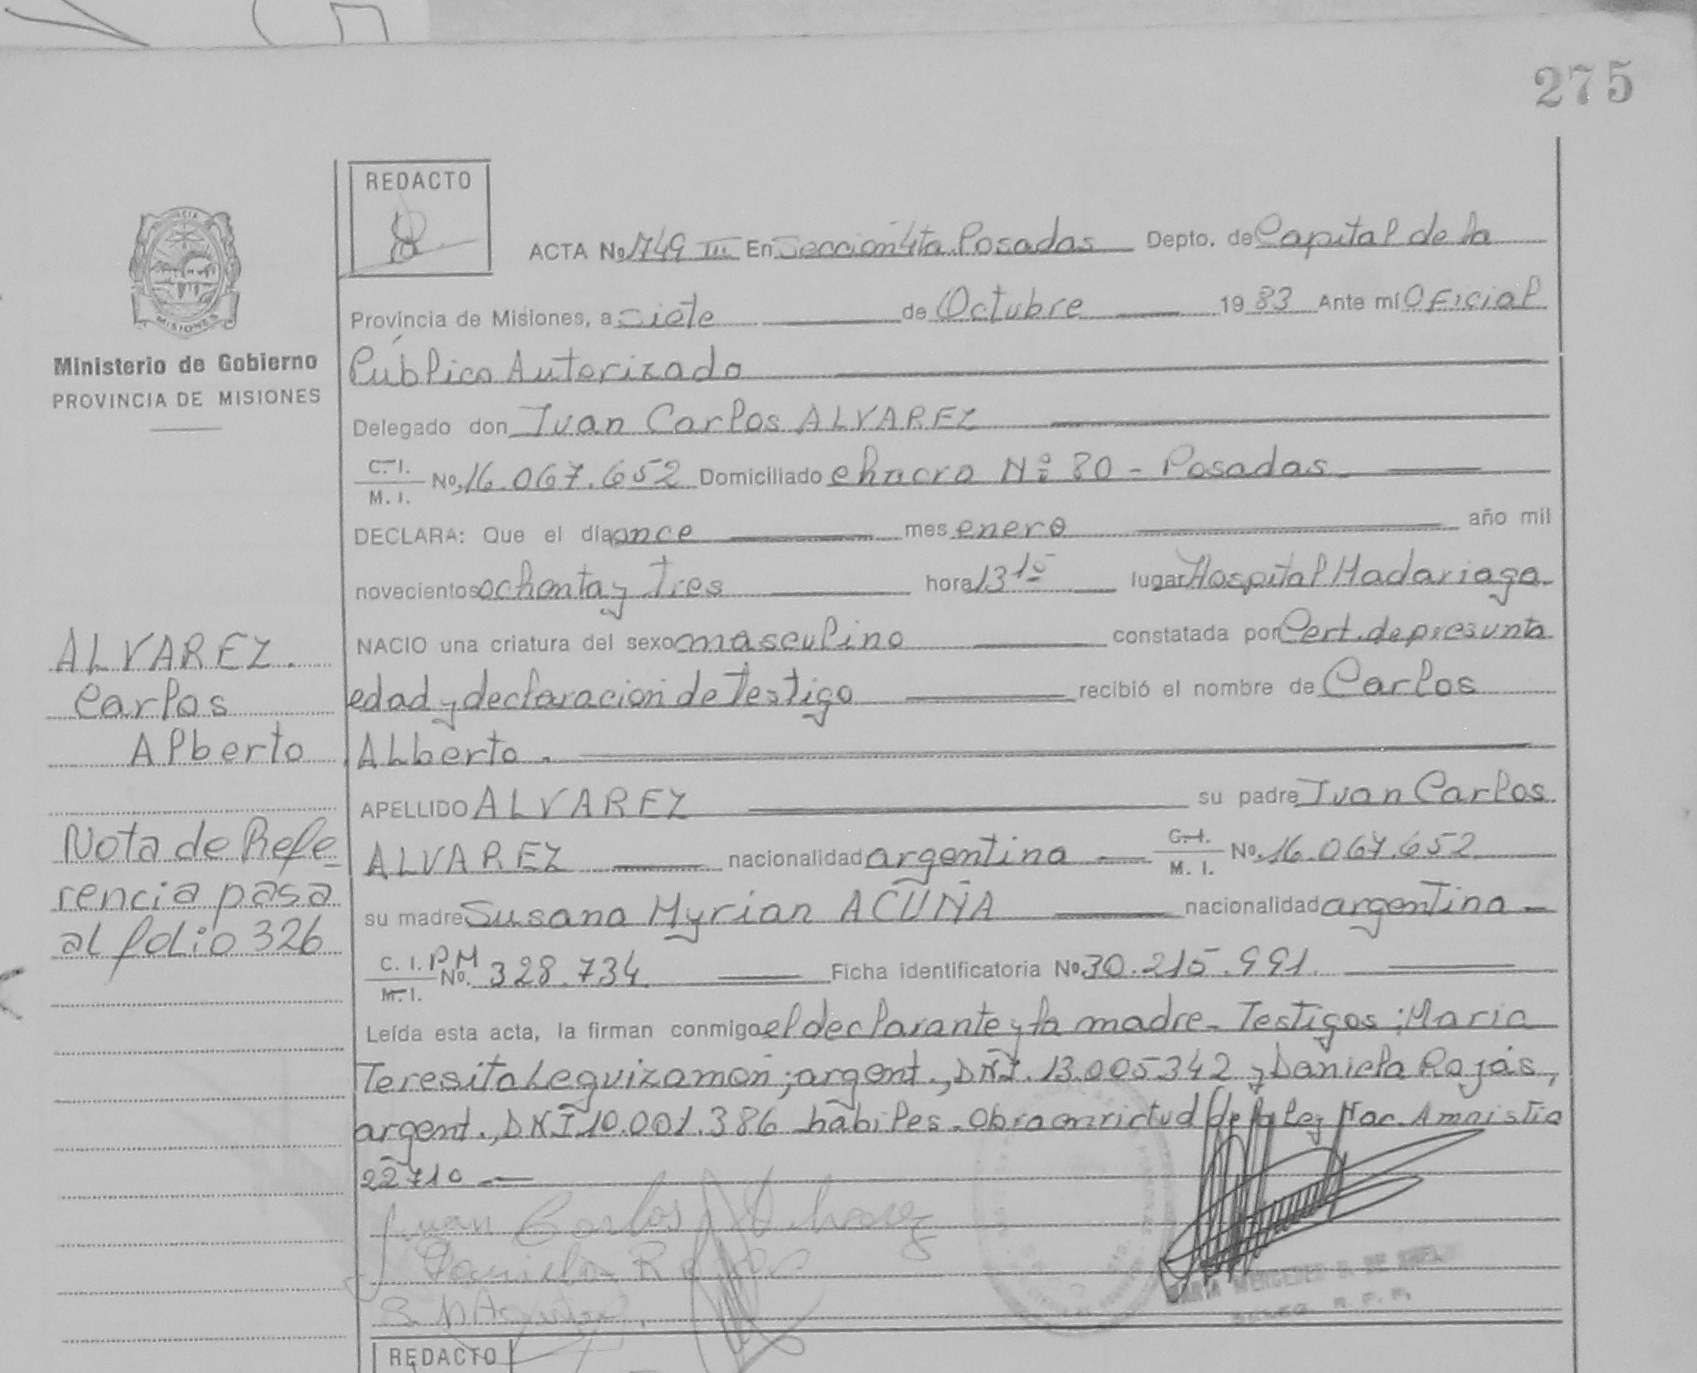 275
REDACTO
ACTA No 1749 III En Sección 4ta. Posadas Depto. de Capital de la
Provincia de Misiones, a siete de Octubre 1983 Ante mí Oficial
Público Autorizado
Ministerio de Gobierno
PROVINCIA DE MISIONES
Delegado don Juan Carlos ALVAREZ
C. I. M. I. No. 16.067.652 Domiciliado chacra Nº 80 - Posadas
DECLARA: Que el día once mes enero año mil
novecientos ochenta y tres hora 13 10 lugar Hospital Madariaga
NACIO una criatura del sexo masculino constatada por Cert. de presunta
edad y declaración de Testigo recibió el nombre de Carlos
Alberto.
ALVAREZ.
Carlos
Alberto
APELLIDO ALVAREZ su padre Juan Carlos
ALVAREZ nacionalidad argentina C. I. M. I. No. 16.067.652
su madre Susana Myrian ACUÑA nacionalidad argentina
C. I. M. I. P.M No. 328.734 Ficha identificatoria No 30.215.991
Nota de Refe
rencia pasa
al folio 326
Leída esta acta, la firman conmigo el declarante y la madre - Testigos: Maria
Teresita Leguizamón; argent., DNI. 13.005342 y Daniela Rojas,
argent., DNI 10.001.386 hábiles. Obra en virtud de la ley Nac. Amnistia
22710
Juan Carlos Alvarez
Daniela Rojas
MARIA MERCEDES
REDACTO